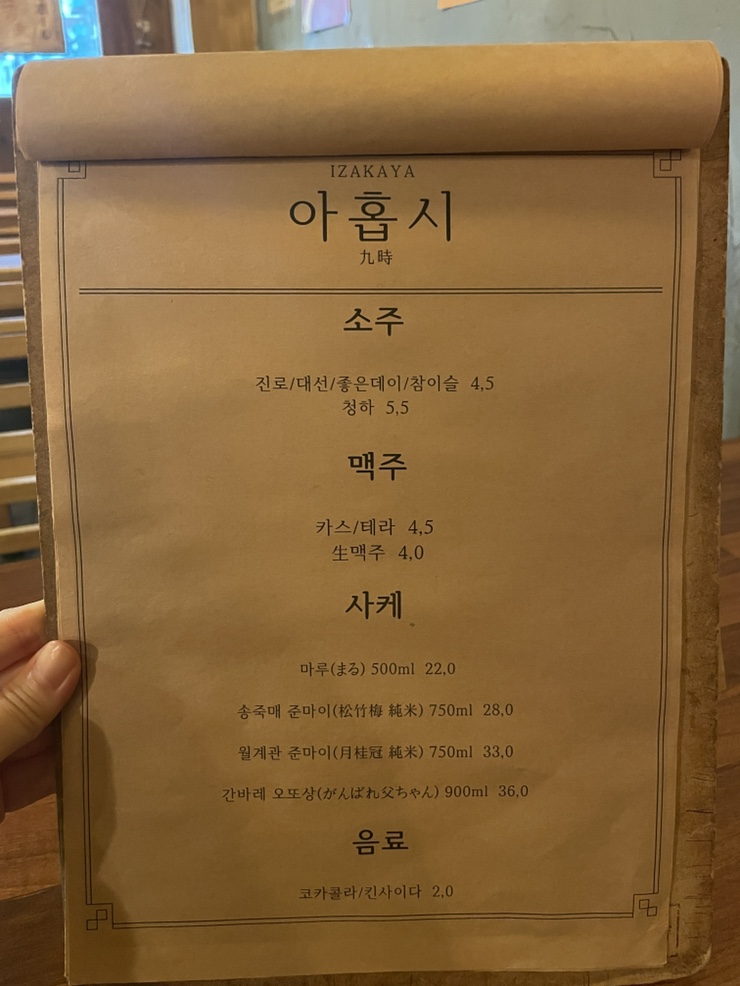 IZAKAYA
아홉시
九時
소주
진로/대선/좋은데이/참이슬 4,5
청하 5,5
맥주
카스/테라 4,5
生맥주 4,0
사케
마루(まる) 500ml 22,0
송죽매 준마이(松竹梅 純米) 750ml 28,0
월계관 준마이(月桂冠 純米) 750ml 33,0
간바레 오또상(がんばれ父ちゃん) 900ml 36,0
음료
코카콜라/킨사이다 2,0